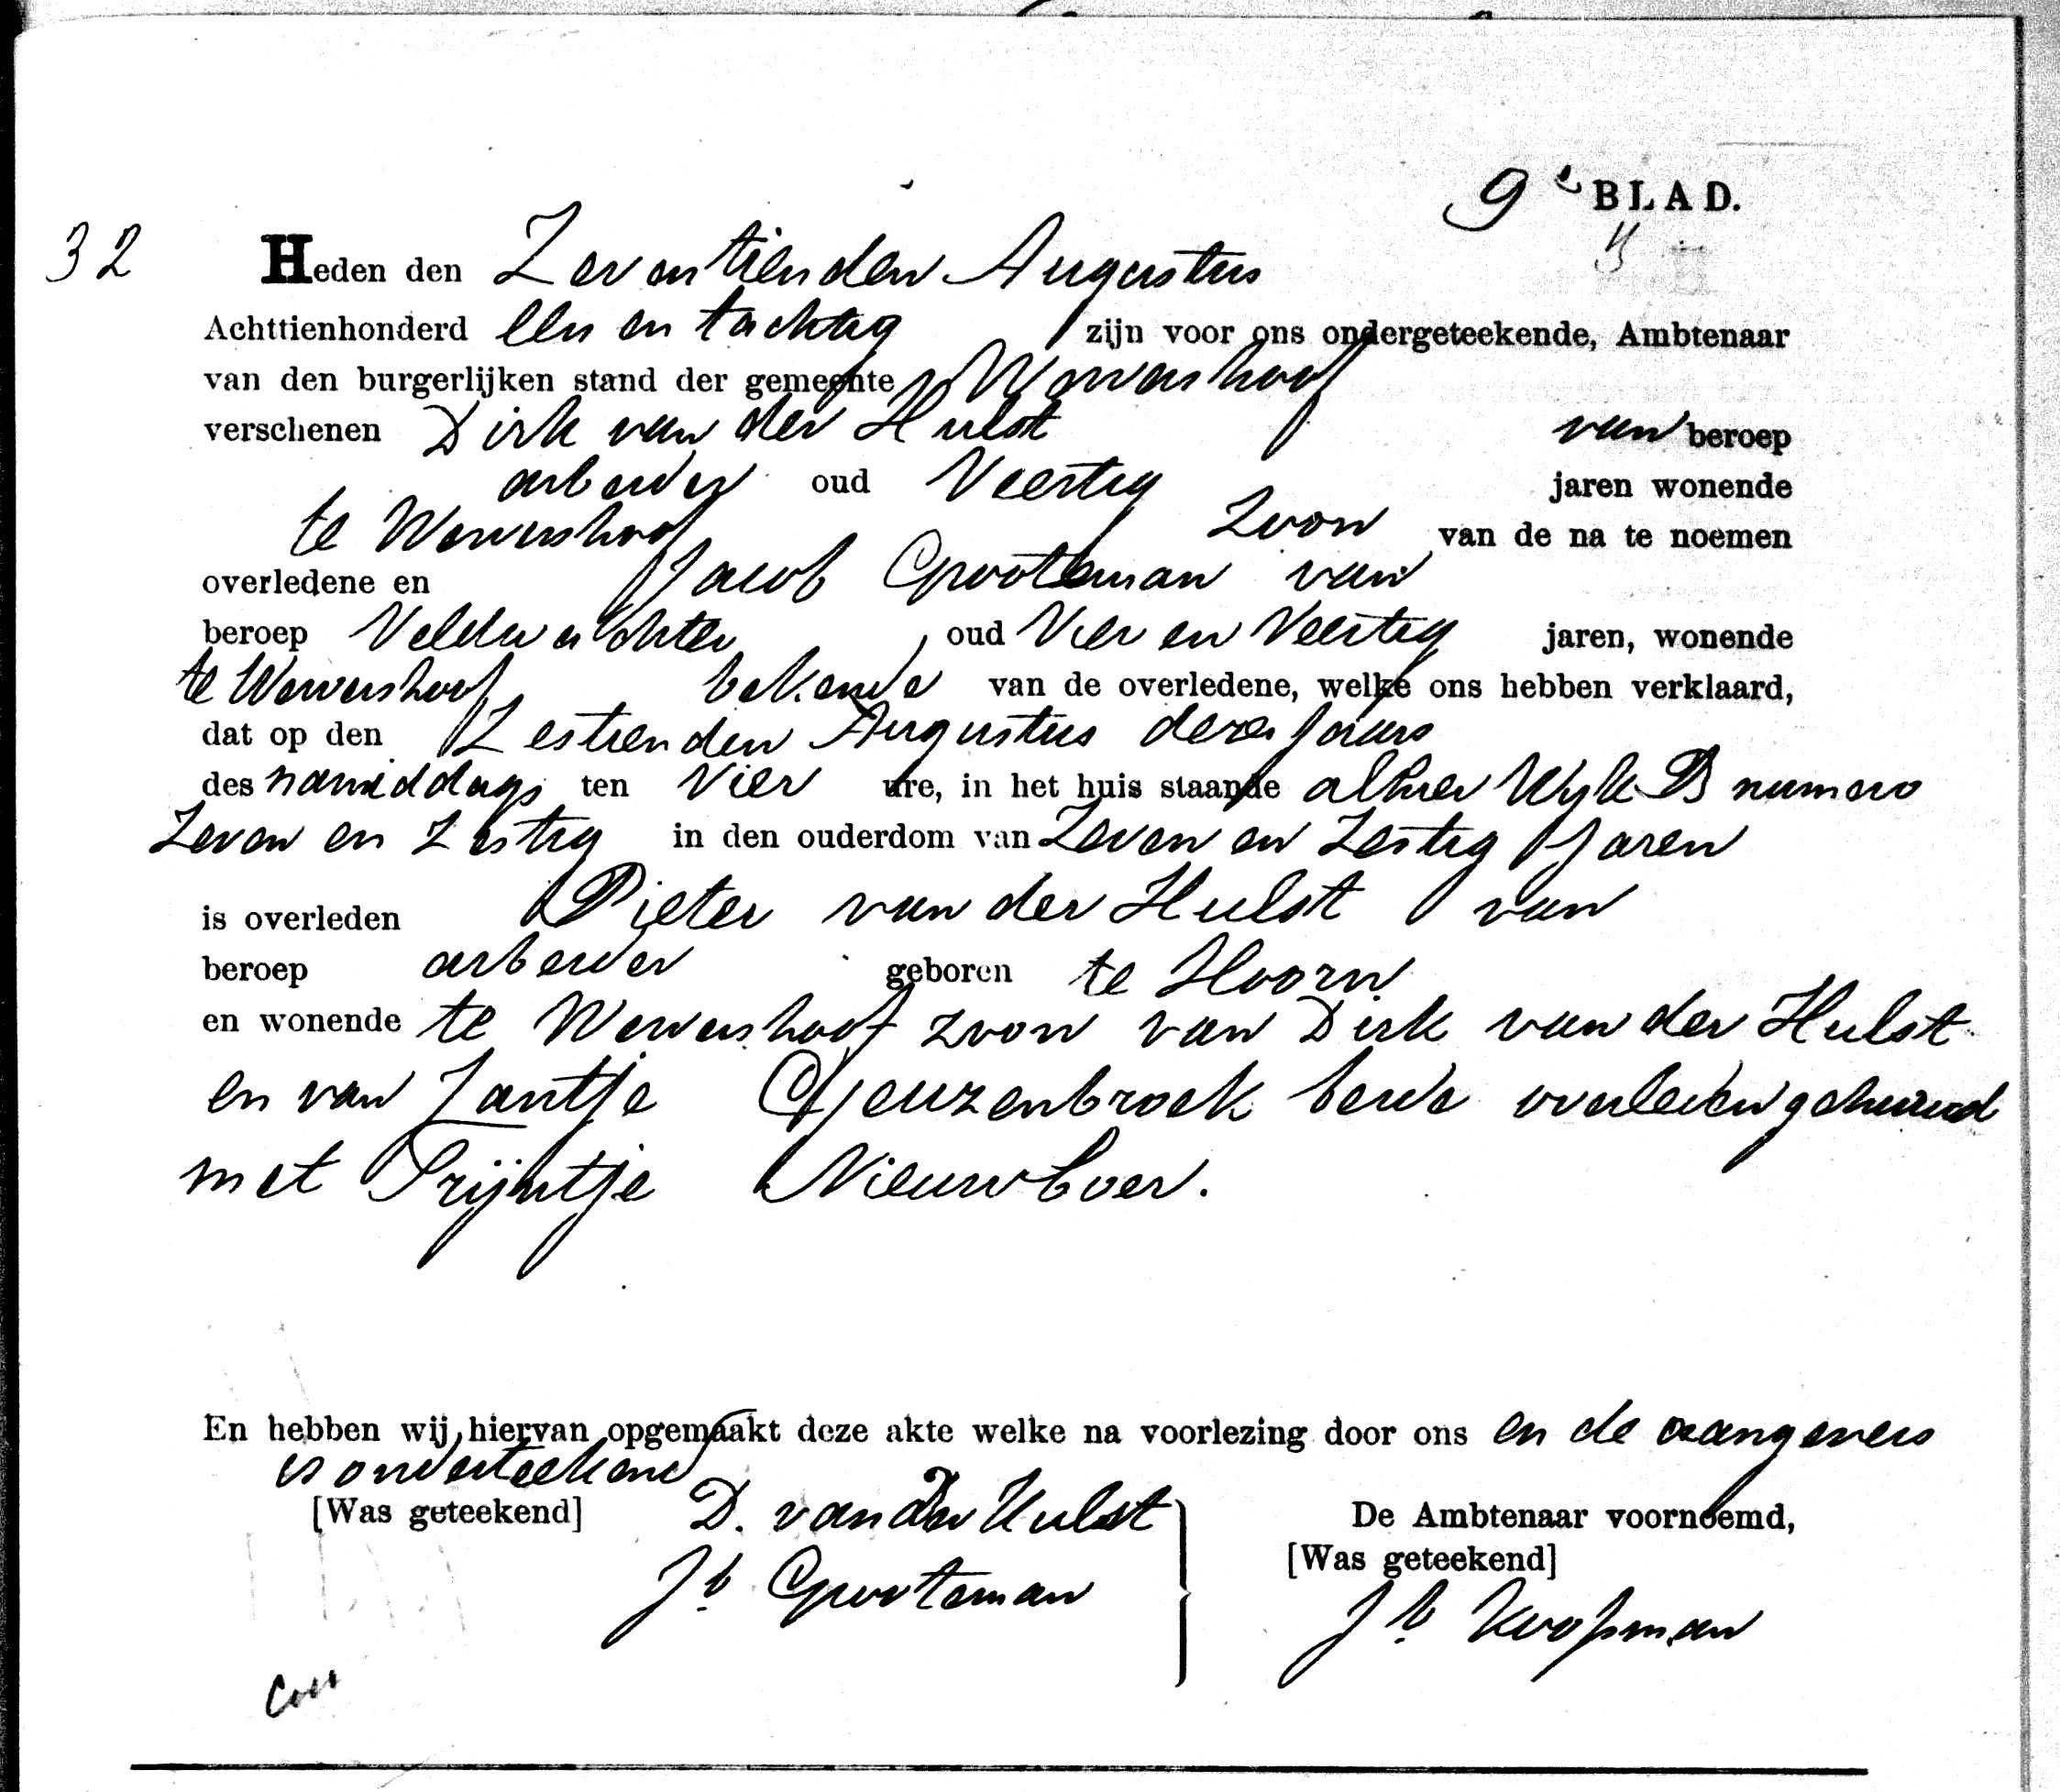 9e BLAD.
32 Heden den Zeventienden Augustus
Achttienhonderd een en tachtig zijn voor ons ondergeteekende, Ambtenaar
van den burgerlijken stand der gemeente Wervershoof
verschenen Dirk van der Hulst van beroep
arbeider oud Veertig jaren wonende
te Wervershoof Zoon van de na te noemen
overledene en Jacob Grooteman van
beroep Veldwachter, oud Vier en Veertig jaren, wonende
te Wervershoof bekende van de overledene, welke ons hebben verklaard,
dat op den Zestienden Augustus dezes jaars
des namiddags ten Vier ure, in het huis staande alhier Wijk B numero
Zeven en Zestig in den ouderdom van Zeven en Zestig Jaren
is overleden Pieter van der Hulst van
beroep arbeider geboren te Hoorn
en wonende te Wervershoof zoon van Dirk van der Hulst
en van Jantje Geuzenbroek beide overleden gehuwd
met Trijntje Nieuwboer.
En hebben wij hiervan opgemaakt deze akte welke na voorlezing door ons en de aangevers
is onderteekend
[Was geteekend] D. van der Hulst
De Ambtenaar voornoemd,
[Was geteekend]
Jb. Grooteman
Jb. Koopman